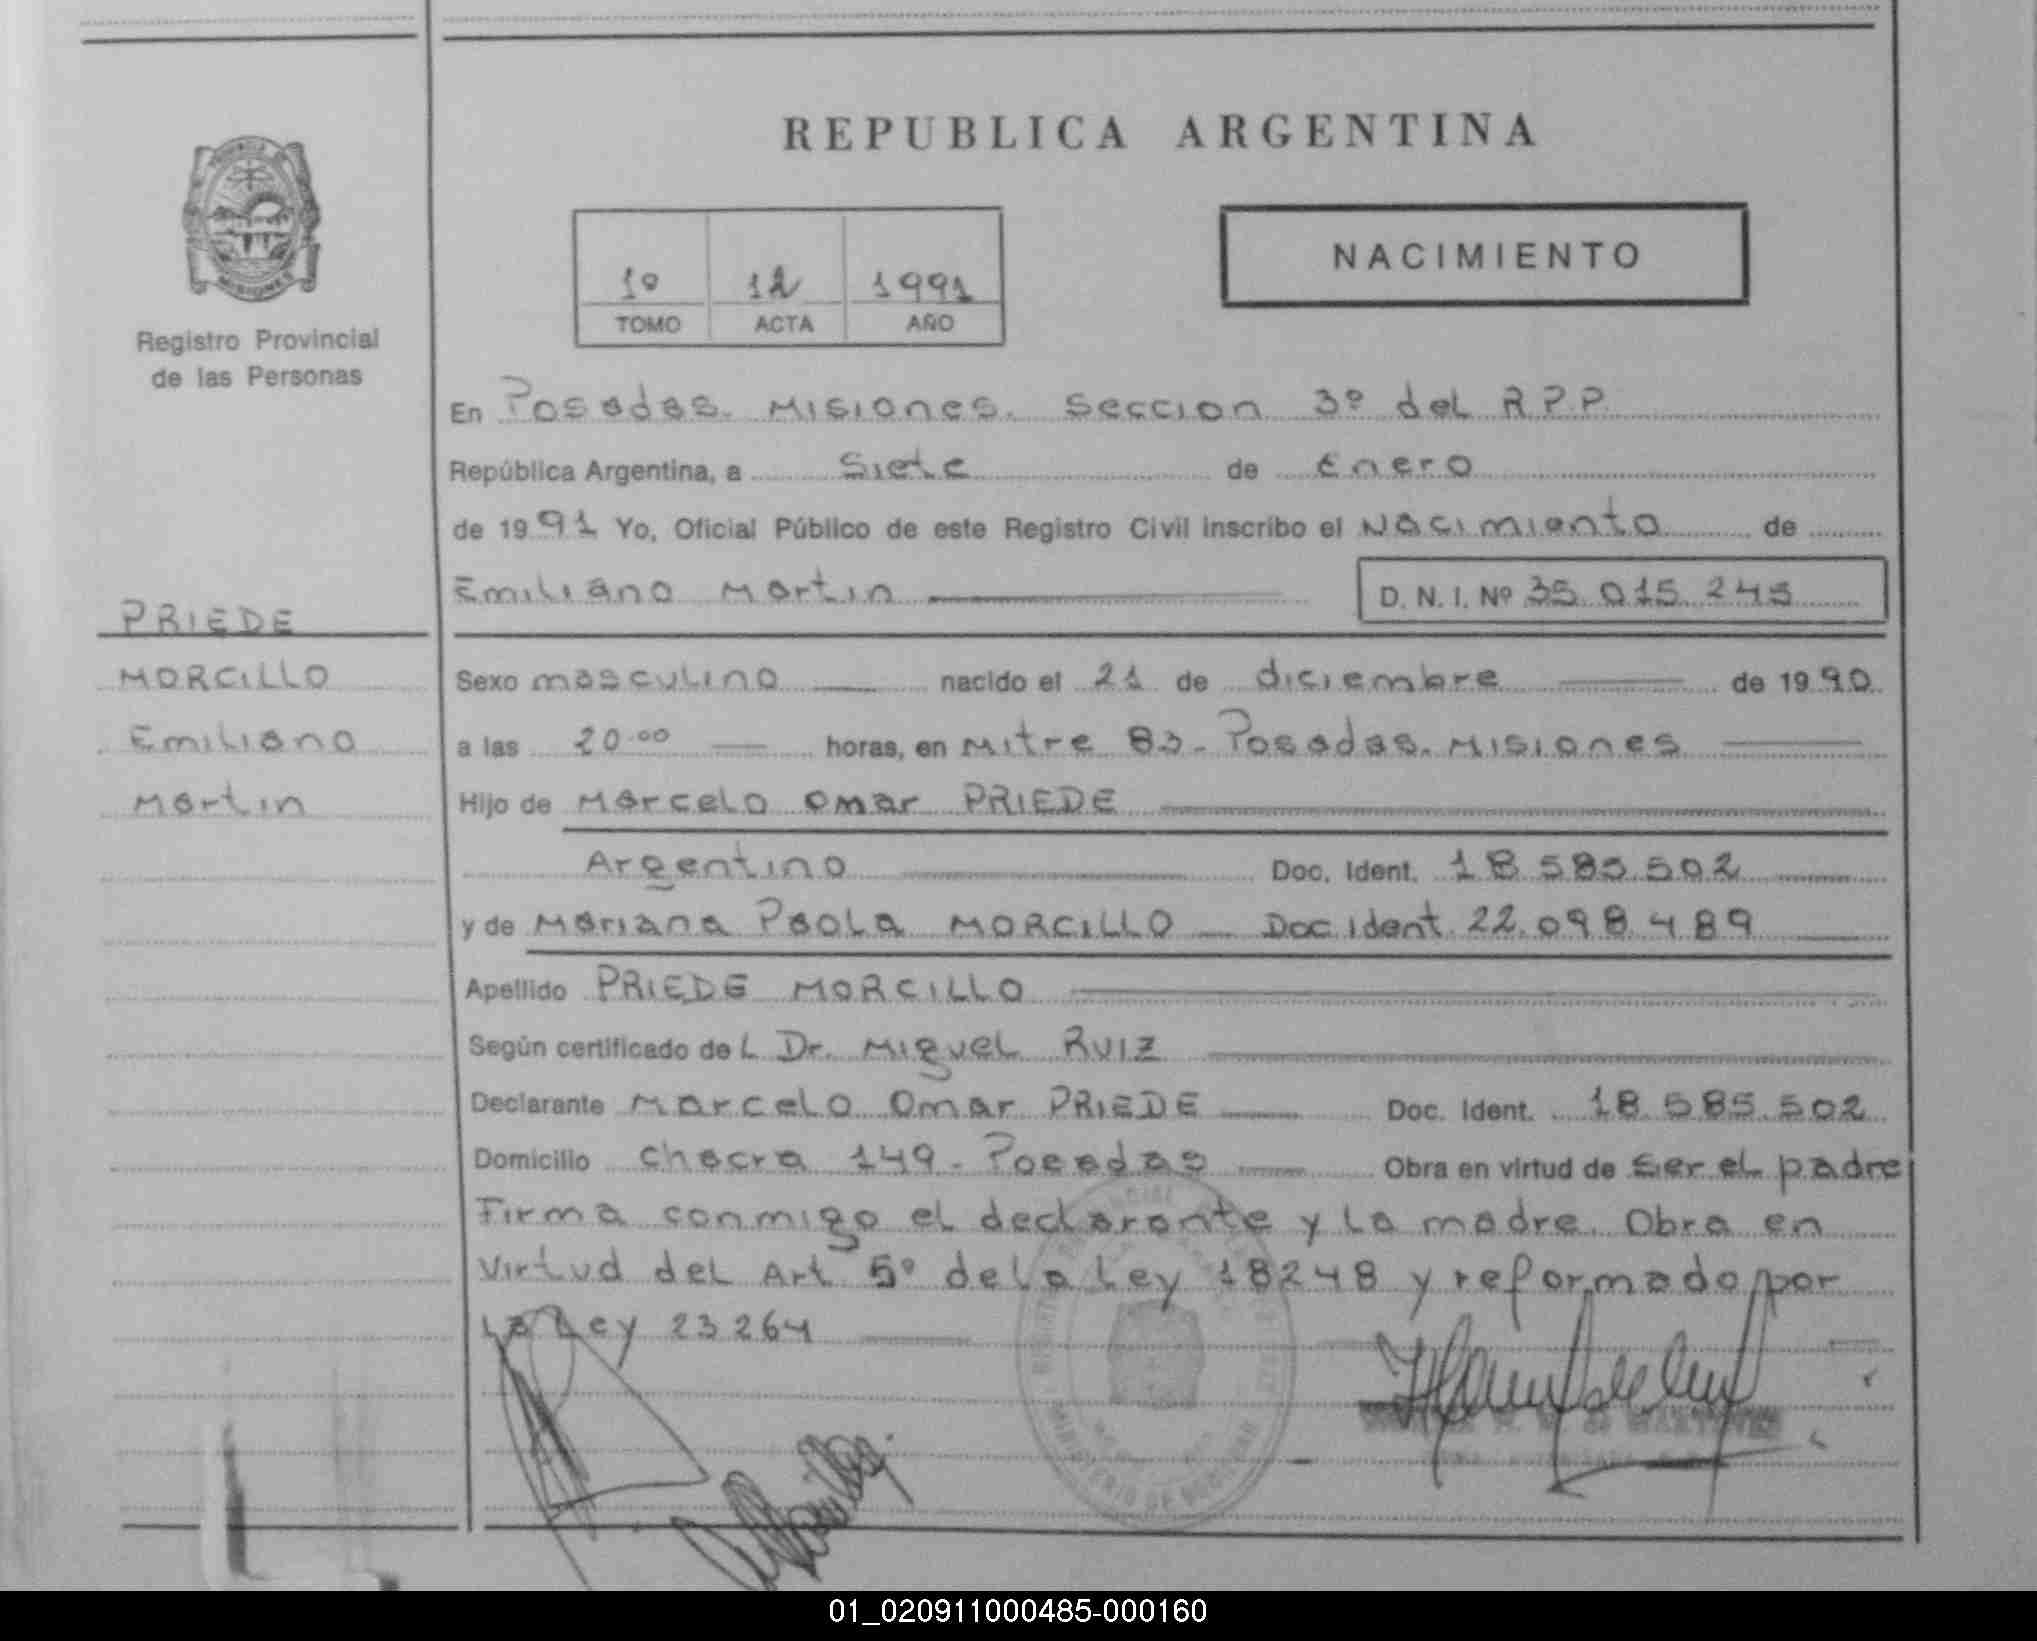 REPUBLICA ARGENTINA
PROVINCIA DE
MISIONES
Registro Provincial
de las Personas
1º 12 1991
TOMO ACTA AÑO
NACIMIENTO
En Posadas. Misiones. Seccion 3º del R.P.P.
República Argentina, a Siete de Enero
de 1991 Yo, Oficial Público de este Registro Civil inscribo el Nacimiento de
Emiliano Martin D. N. I. Nº 35.015.245
PRIEDE
MORCILLO
Emiliano
Martin
Sexo masculino nacido el 21 de diciembre de 1990
a las 20.00 horas, en Mitre 83 - Posadas. Misiones
Hijo de Marcelo Omar PRIEDE
Argentino Doc. Ident. 18.585.502
y de Mariana Paola MORCILLO Doc. Ident. 22.098.489
Apellido PRIEDE MORCILLO
Según certificado del Dr. Miguel RUIZ
Declarante Marcelo Omar PRIEDE Doc. Ident. 18.585.502
Domicilio Chacra 149 - Posadas Obra en virtud de ser el padre
Firma conmigo el declarante y la madre. Obra en
Virtud del Art 5º de la Ley 18248 y reformado por
La Ley 23264
MINISTERIO DE
01_020911000485-000160